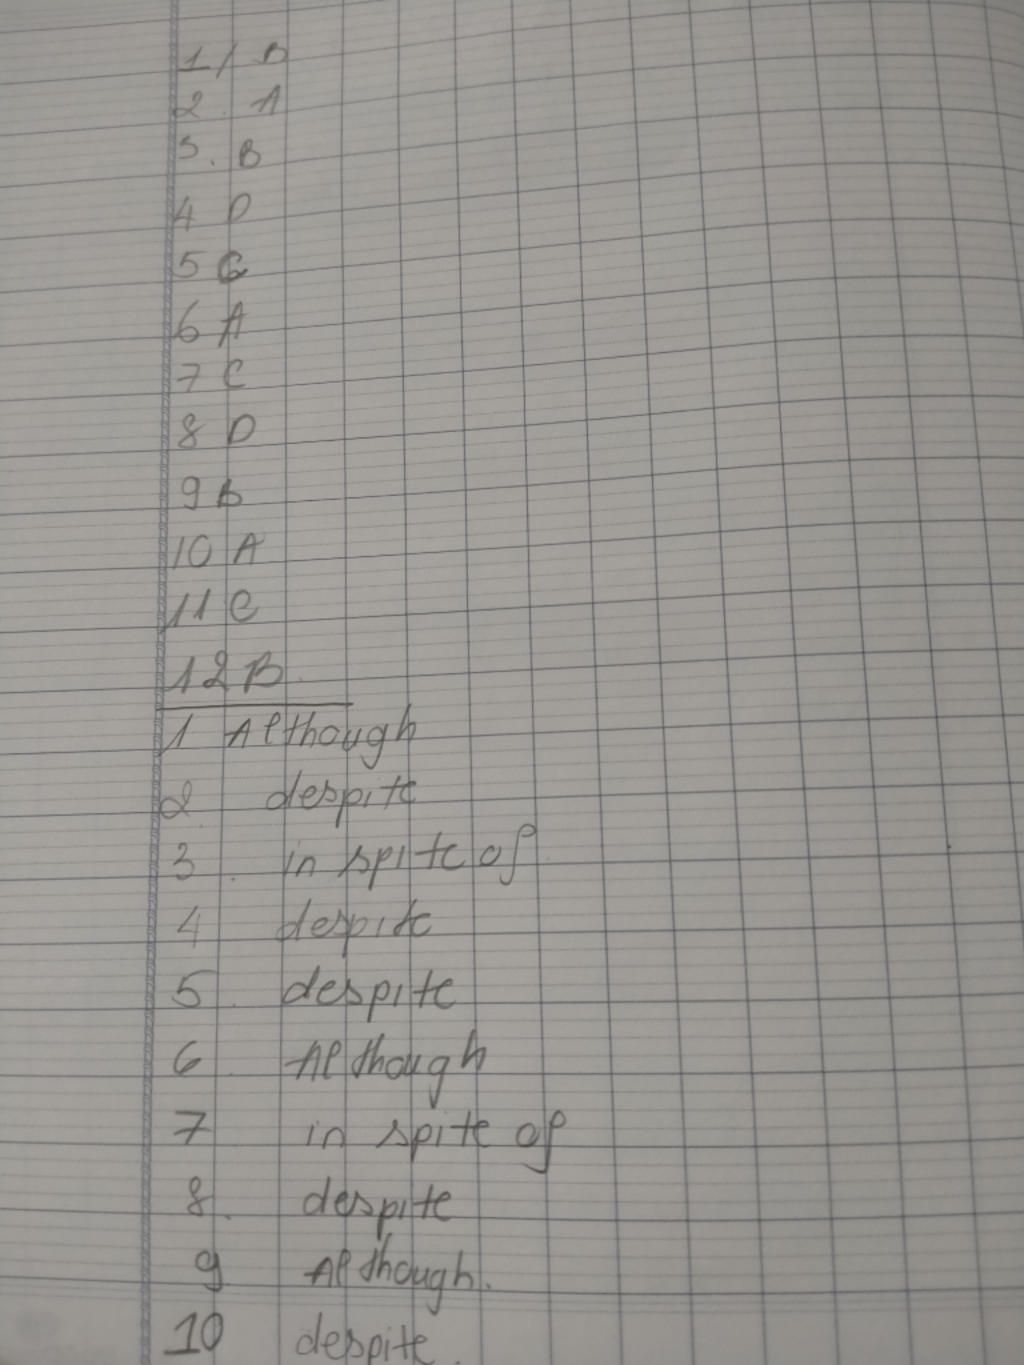 1/ D
2. A
3. B
4 D
5 C
6 A
7 C
8 D
9 B
10 A
11 C
12 B
1 Although
2 despite
3. in spite of
4 despite
5. despite
6 Although
7 in spite of
8. despite
9 Although.
10 despite.